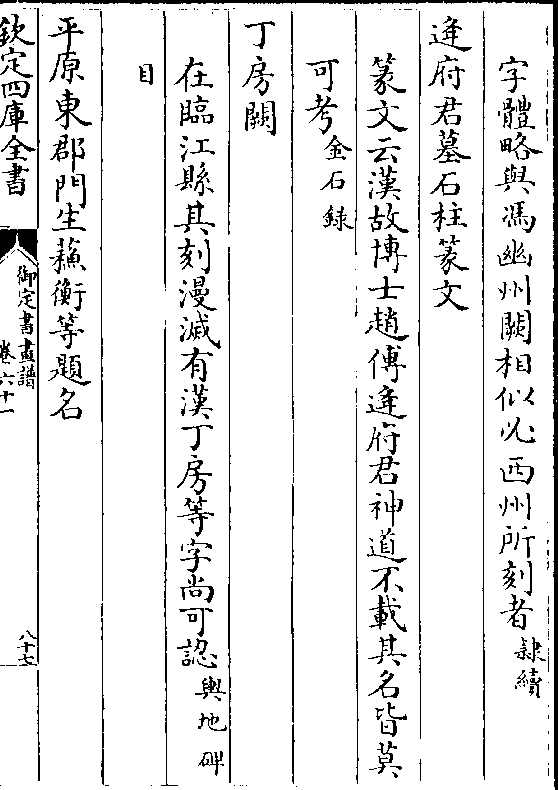 字體略與馮幽州闕相似必西州所刻者隸續
逄府君墓石柱篆文
篆文云漢故博士趙傅逄府君神道不載其名皆莫
可考金石錄
丁房闕
在臨江縣其刻漫滅有漢丁房等字尚可認輿地碑
目
平原東郡門生蘓衡等題名
欽定四庫全書
御定書畫譜
卷六十一
八十七